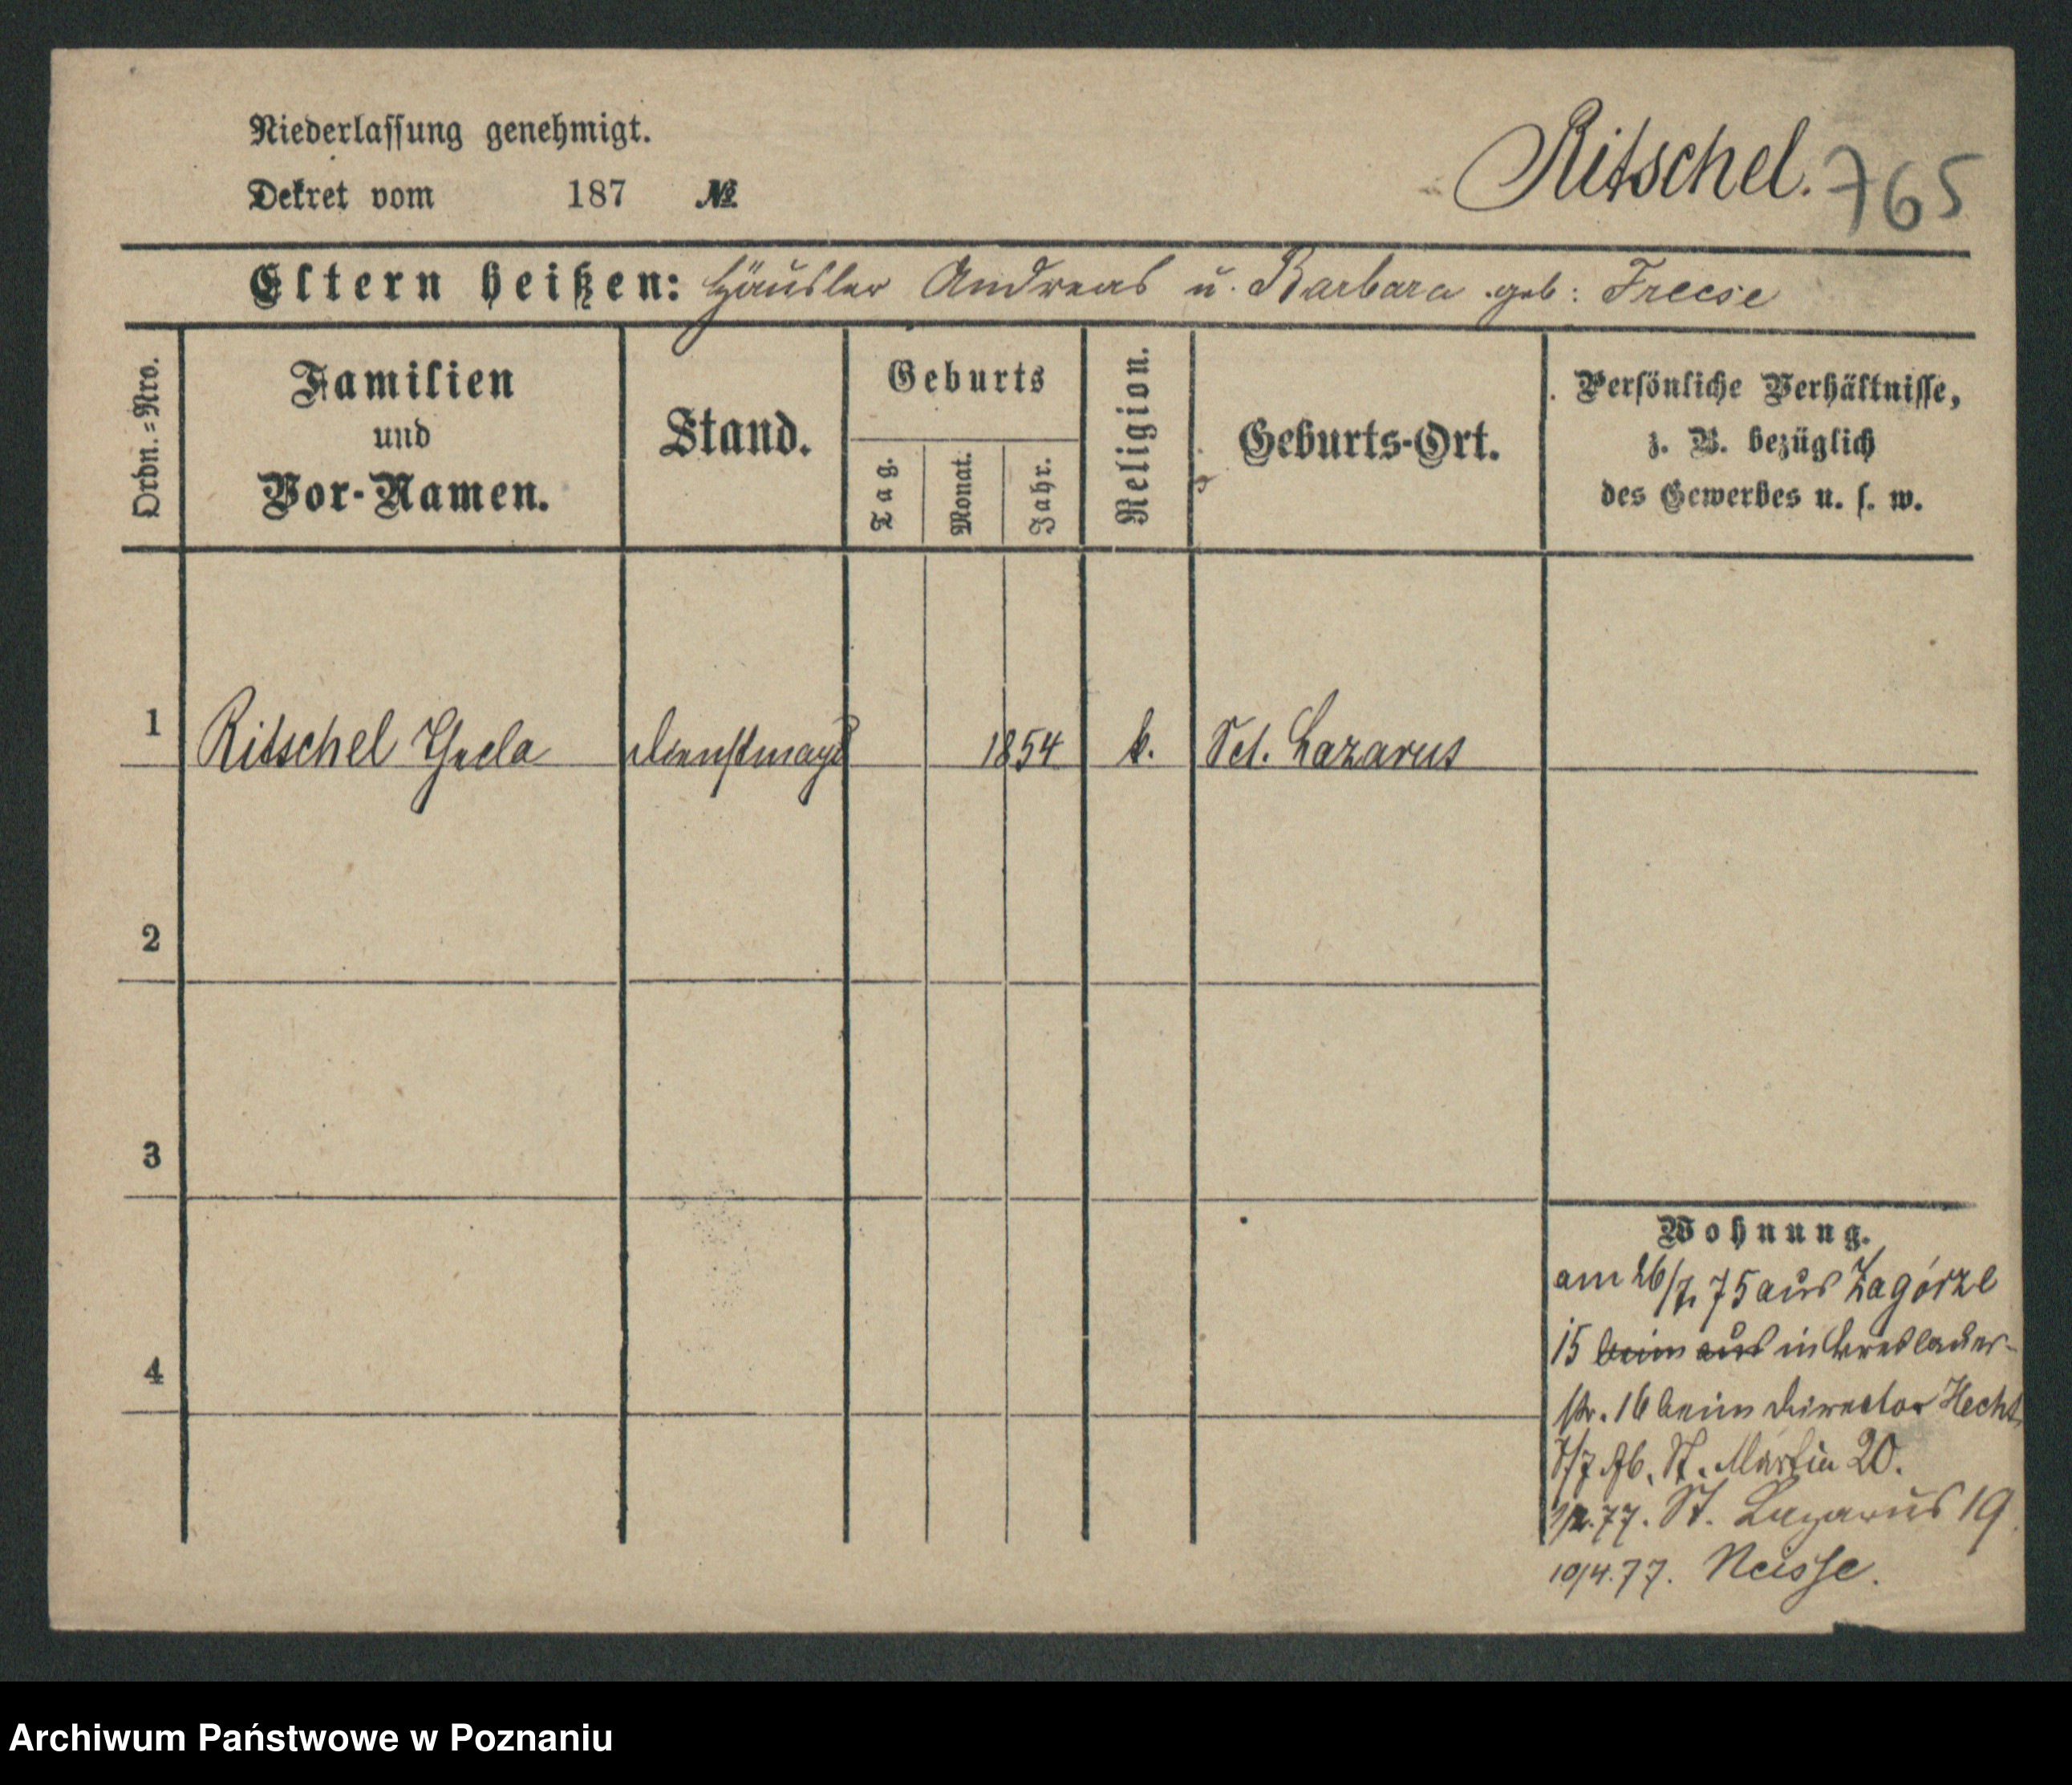 Niederlassung genehmigt.
Dekret vom 187 №
Ritschel. 765
Eltern heißen: Häusler Andreas u. Barbara geb: Freese
Ordn.=Nro.
Familien
und
Vor-Namen.
Stand.
Geburts
Tag.
Monat.
Jahr.
Religion.
Geburts-Ort.
Persönliche Verhältnisse,
z. B. bezüglich
des Gewerbes u. s. w.
1 Ritschel Dienstmagd 1854 k. Sct. Lazarus
2
3
4
Wohnung.
am 26/7. 75 aus Zagórze
15 beim aus in Breslauer-
str. 16 beim Director Hecht
St. Martin 20.
77. St. Lazarus 19.
10/4. 77. Neisse.
Archiwum Państwowe w Poznaniu